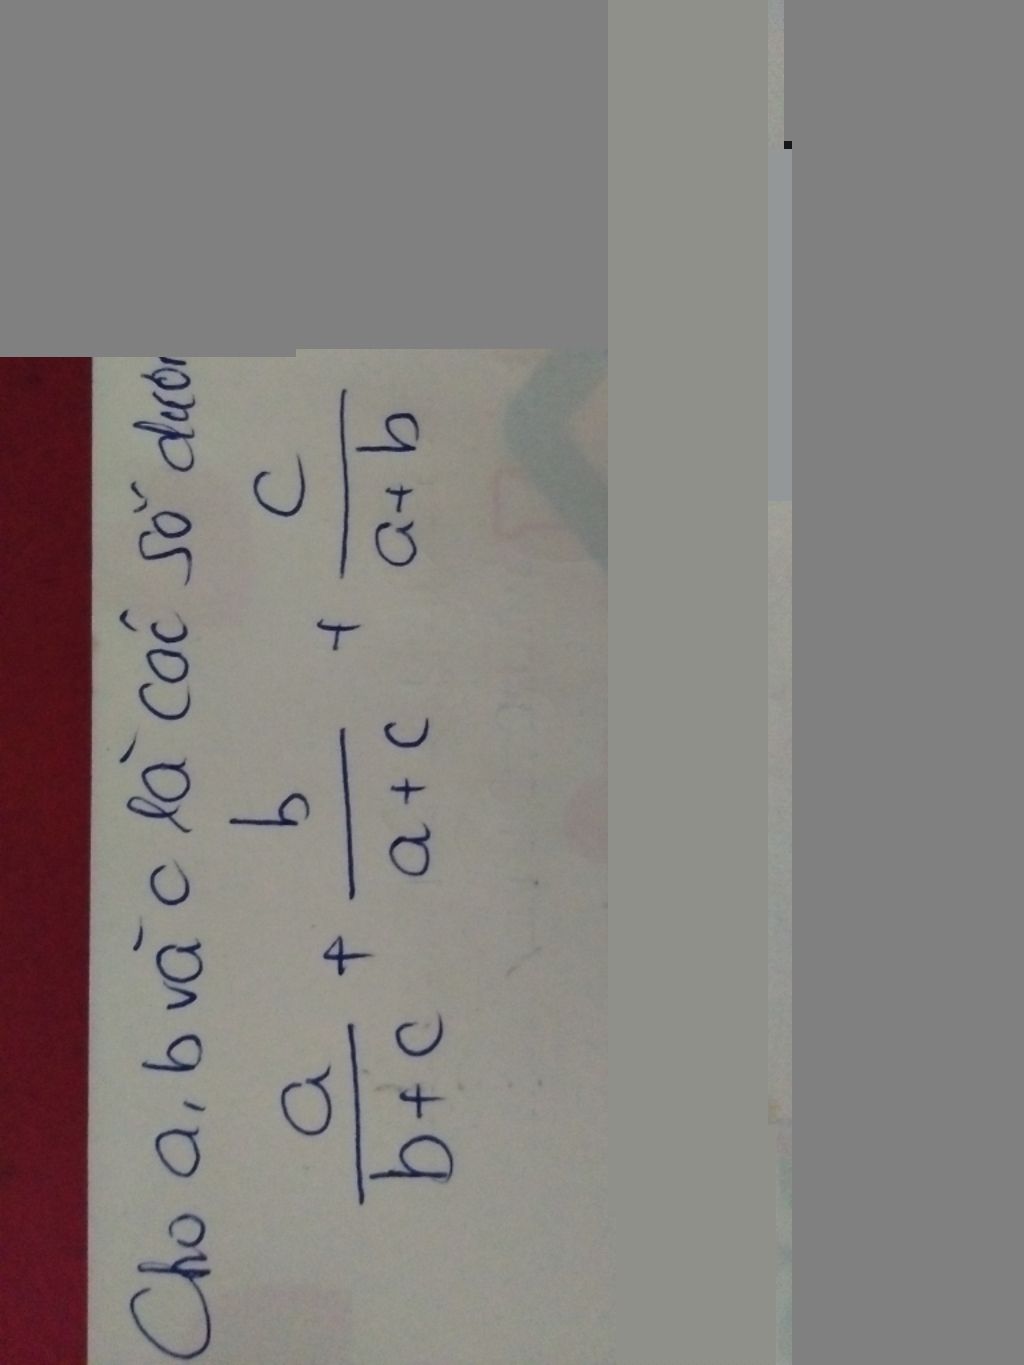 Cho a, b và c là các số
a/(b+c) + b/(a+c) + c/(a+b)